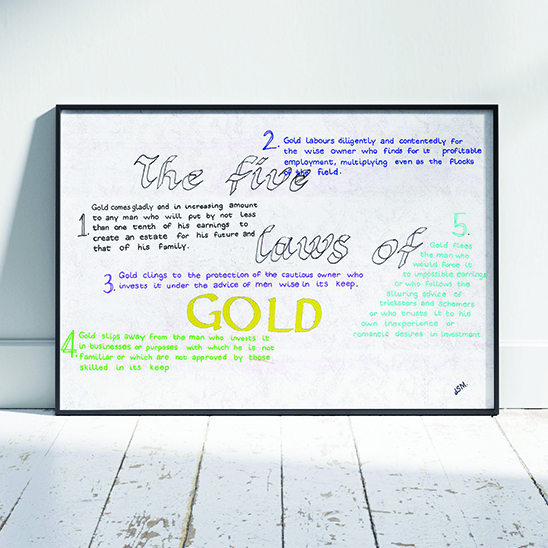 The five
laws of
GOLD
1. Gold comes gladly and in increasing amount
to any man who will put by not less
than one tenth of his earnings to
create an estate for his future and
that of his family.
2. Gold labours diligently and contentedly for
the wise owner who finds for it profitable
employment, multiplying even as the flocks
of the field.
3. Gold clings to the protection of the cautious owner who
invests it under the advice of men wise in its keep.
4. Gold slips away from the man who invests it
in businesses or purposes with which he is not
familiar or which are not approved by those
skilled in its keep
5. Gold flees
the man who
would force it
to impossible earnings
or who follows the
alluring advice of
tricksters and schemers
or who trusts it to his
own inexperience or
romantic desires in investment.
JSM.